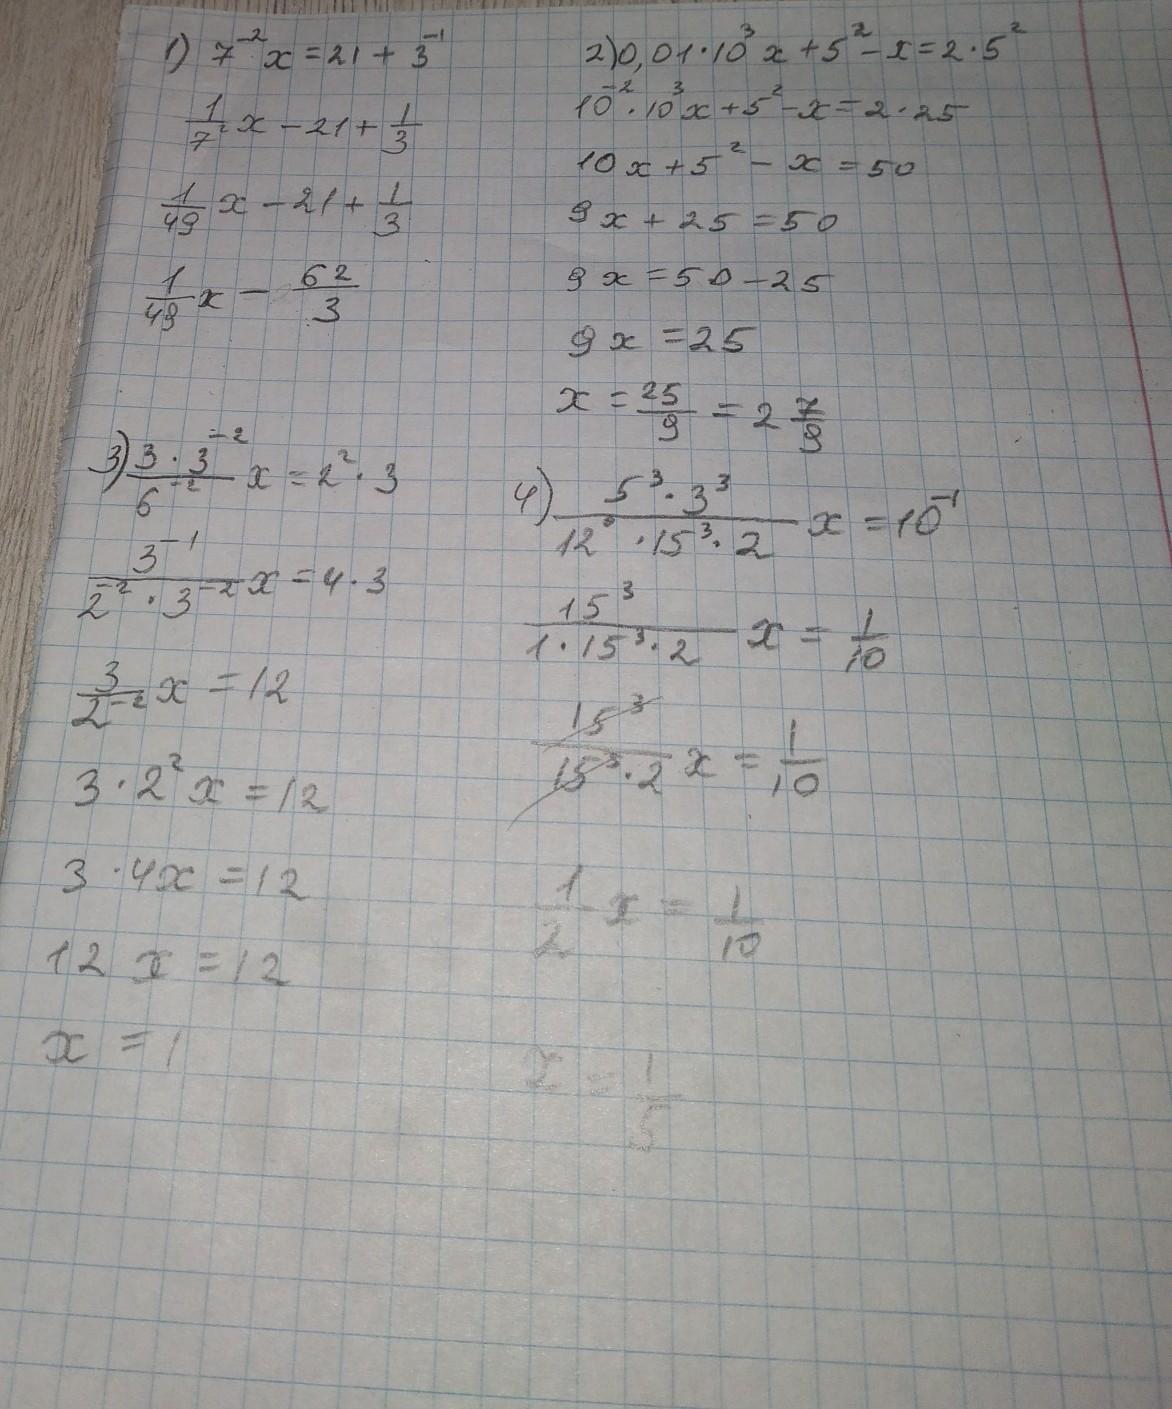 1) 7⁻²x = 21 + 3⁻¹
1/7² x - 21 + 1/3
1/49 x - 21 + 1/3
1/49 x - 62/3
2) 0,01·10³x + 5² - x = 2·5²
10⁻²·10³x + 5² - x = 2·25
10x + 5² - x = 50
9x + 25 = 50
9x = 50 - 25
9x = 25
x = 25/9 = 2 7/9
3) (3·3⁻²)/6⁻² x = 2²·3
3⁻¹/(2⁻²·3⁻²) x = 4·3
3/2⁻² x = 12
3·2²x = 12
3·4x = 12
12x = 12
x = 1
4) (5³·3³)/(12⁰·15³·2) x = 10⁻¹
15³/(1·15³·2) x = 1/10
15³/(15³·2) x = 1/10
1/2 x = 1/10
x = 1/5